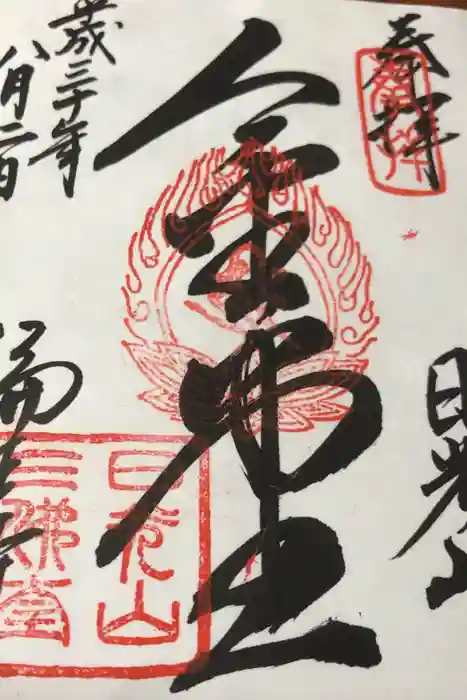 奉拝
日光山
金堂
平成三十年
八月二日
輪王寺
日光山
三佛堂